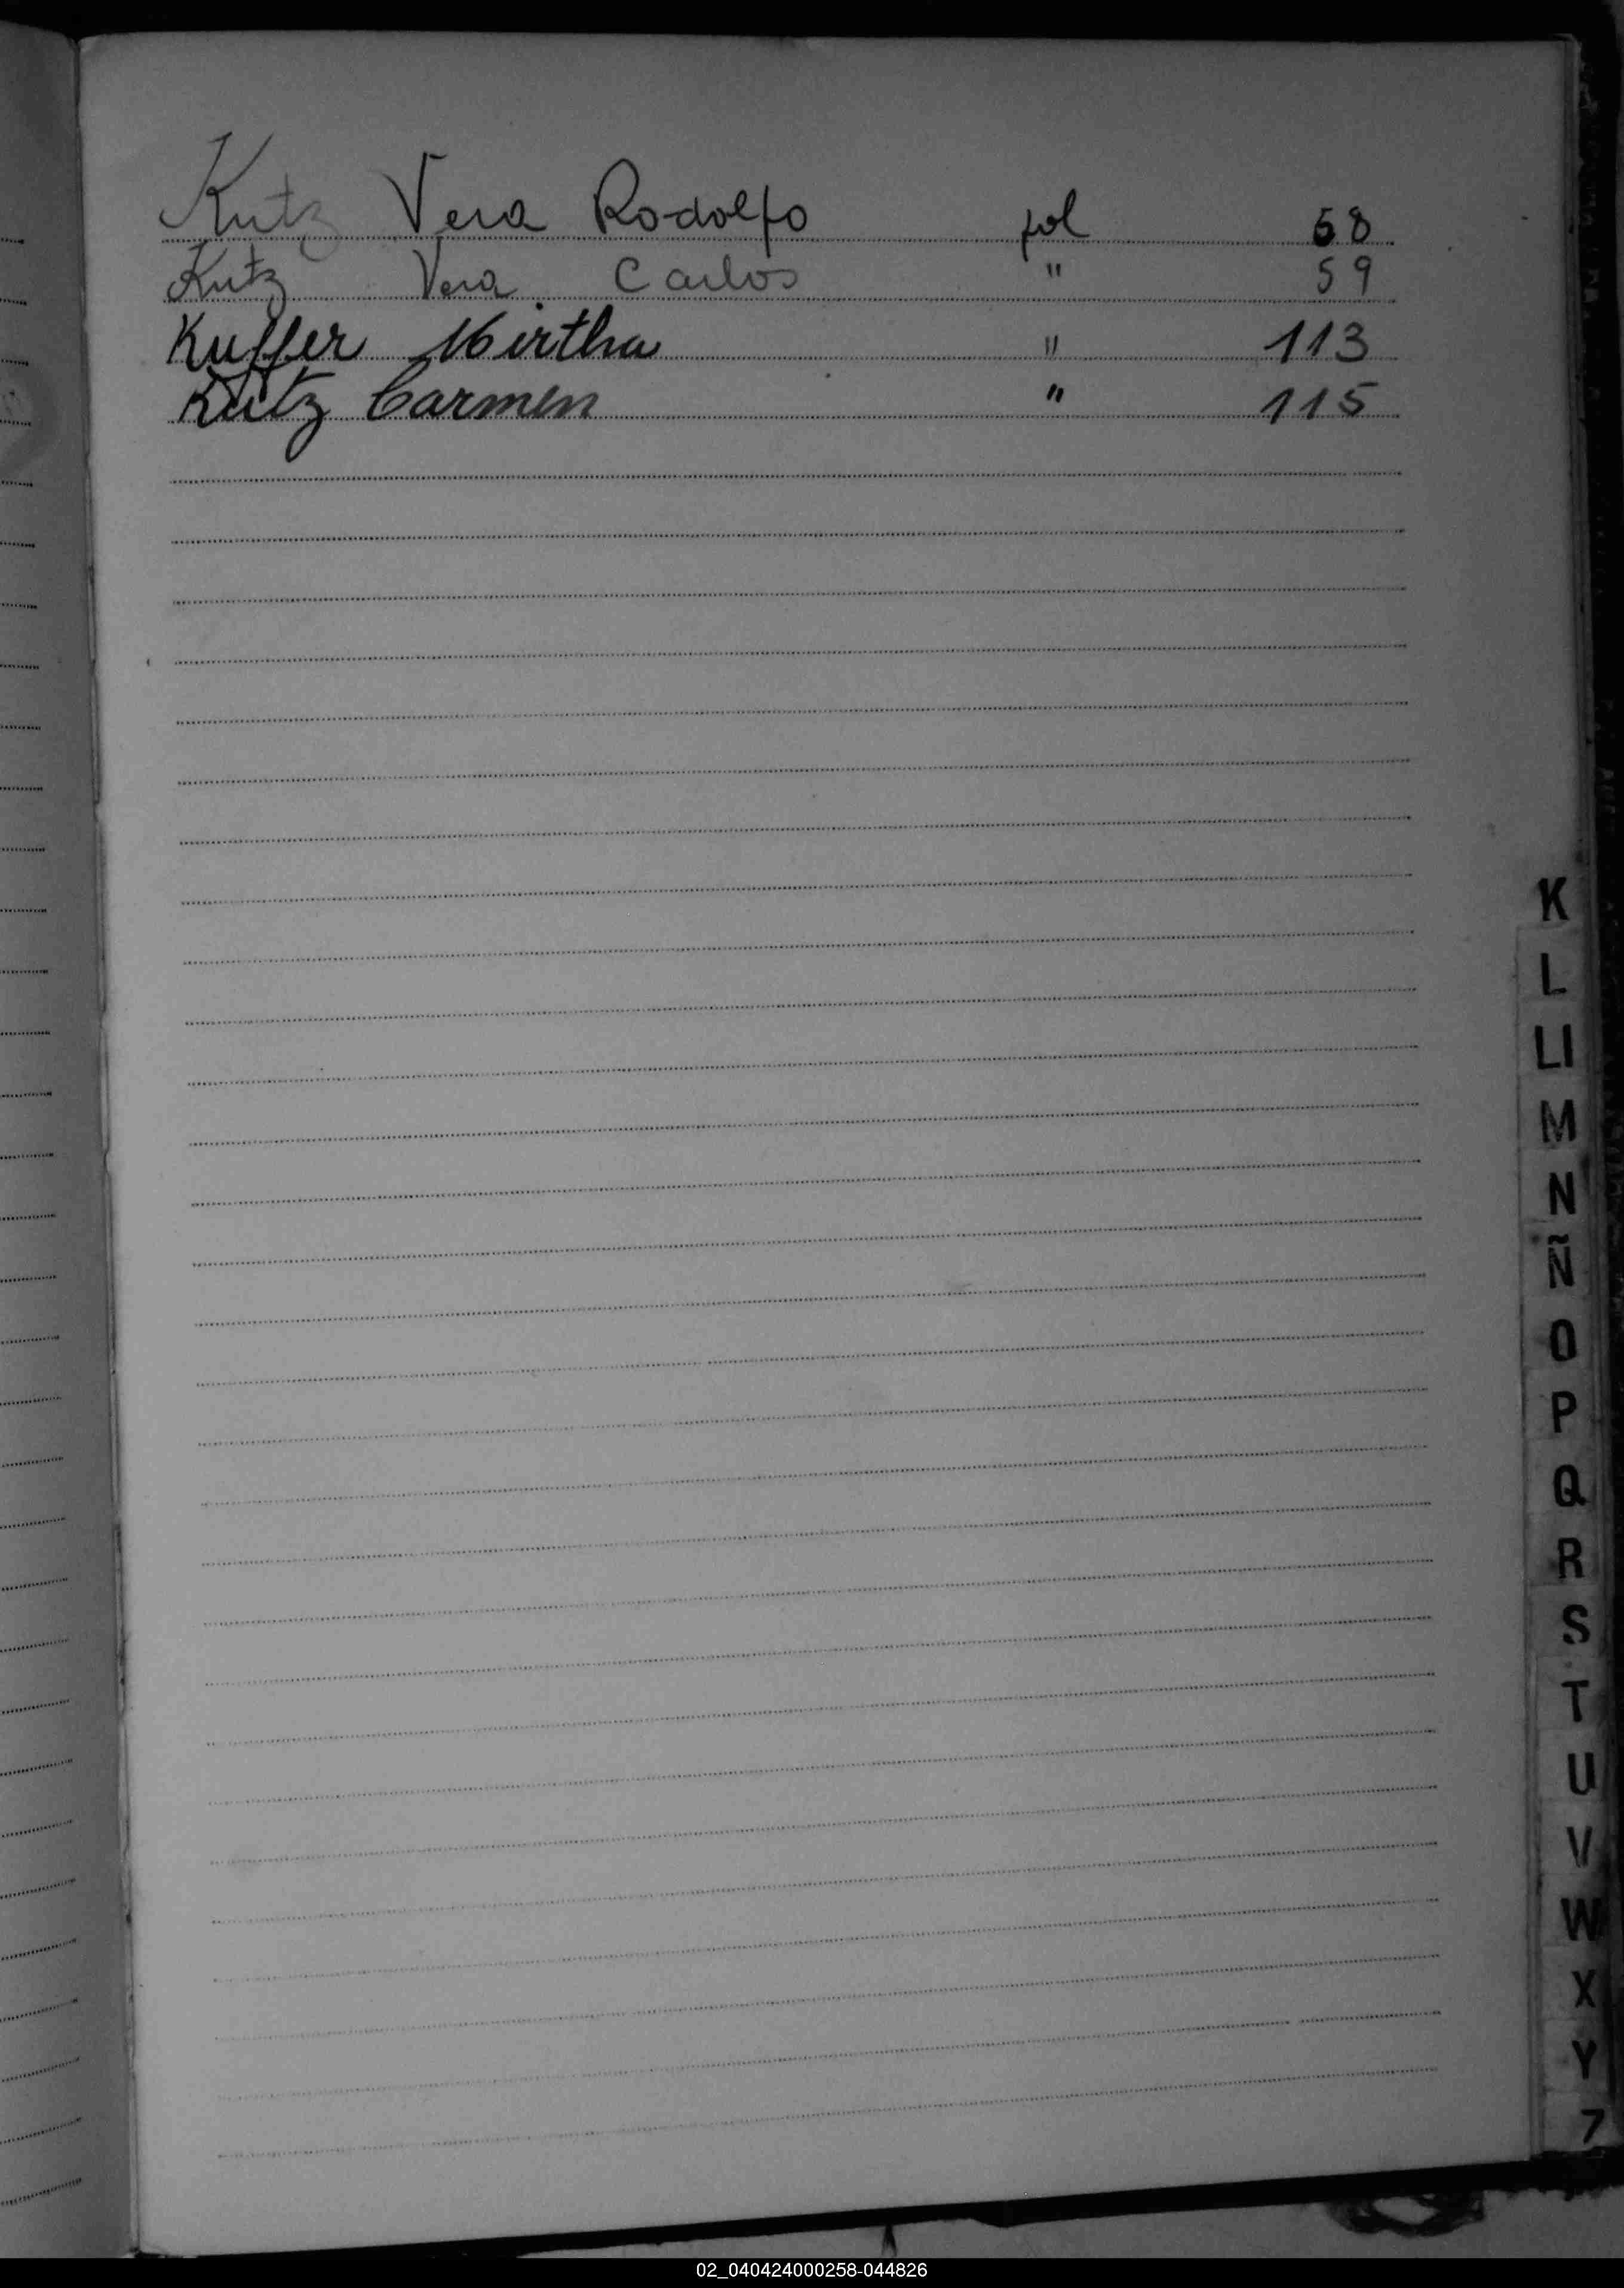 Kutz Vera Rodolfo fol 58
Kutz Vera Carlos " 59
Kuffer Mirtha " 113
Kutz Carmen " 115
K
L
Ll
M
N
Ñ
O
P
Q
R
S
T
U
V
W
X
Y
Z
02_040424000258-044826